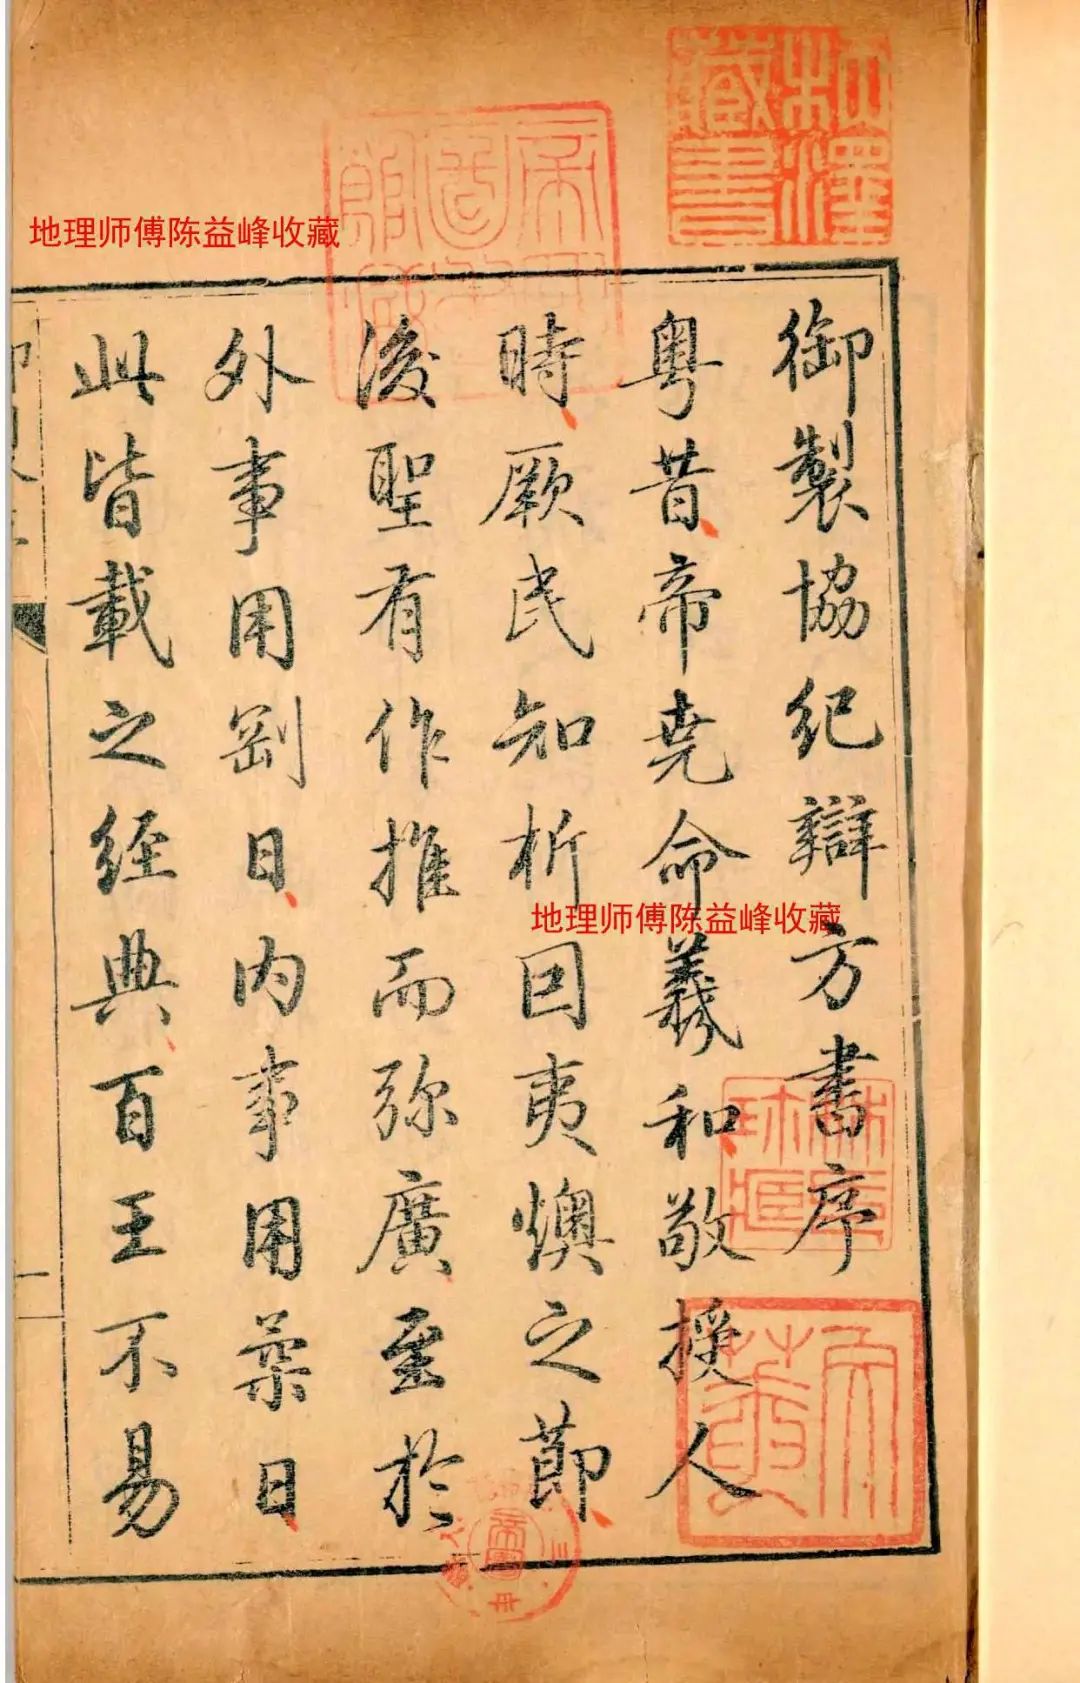 地理师傅陈益峰收藏
御製協紀辯方書序
粵昔帝堯命羲和敬授人
時厥民知析因夷燠之節
後聖有作推而弥廣至於
外事用剛日内事用柔日
此皆載之經典百王不易
一
地理师傅陈益峰收藏
帝國圖書館藏